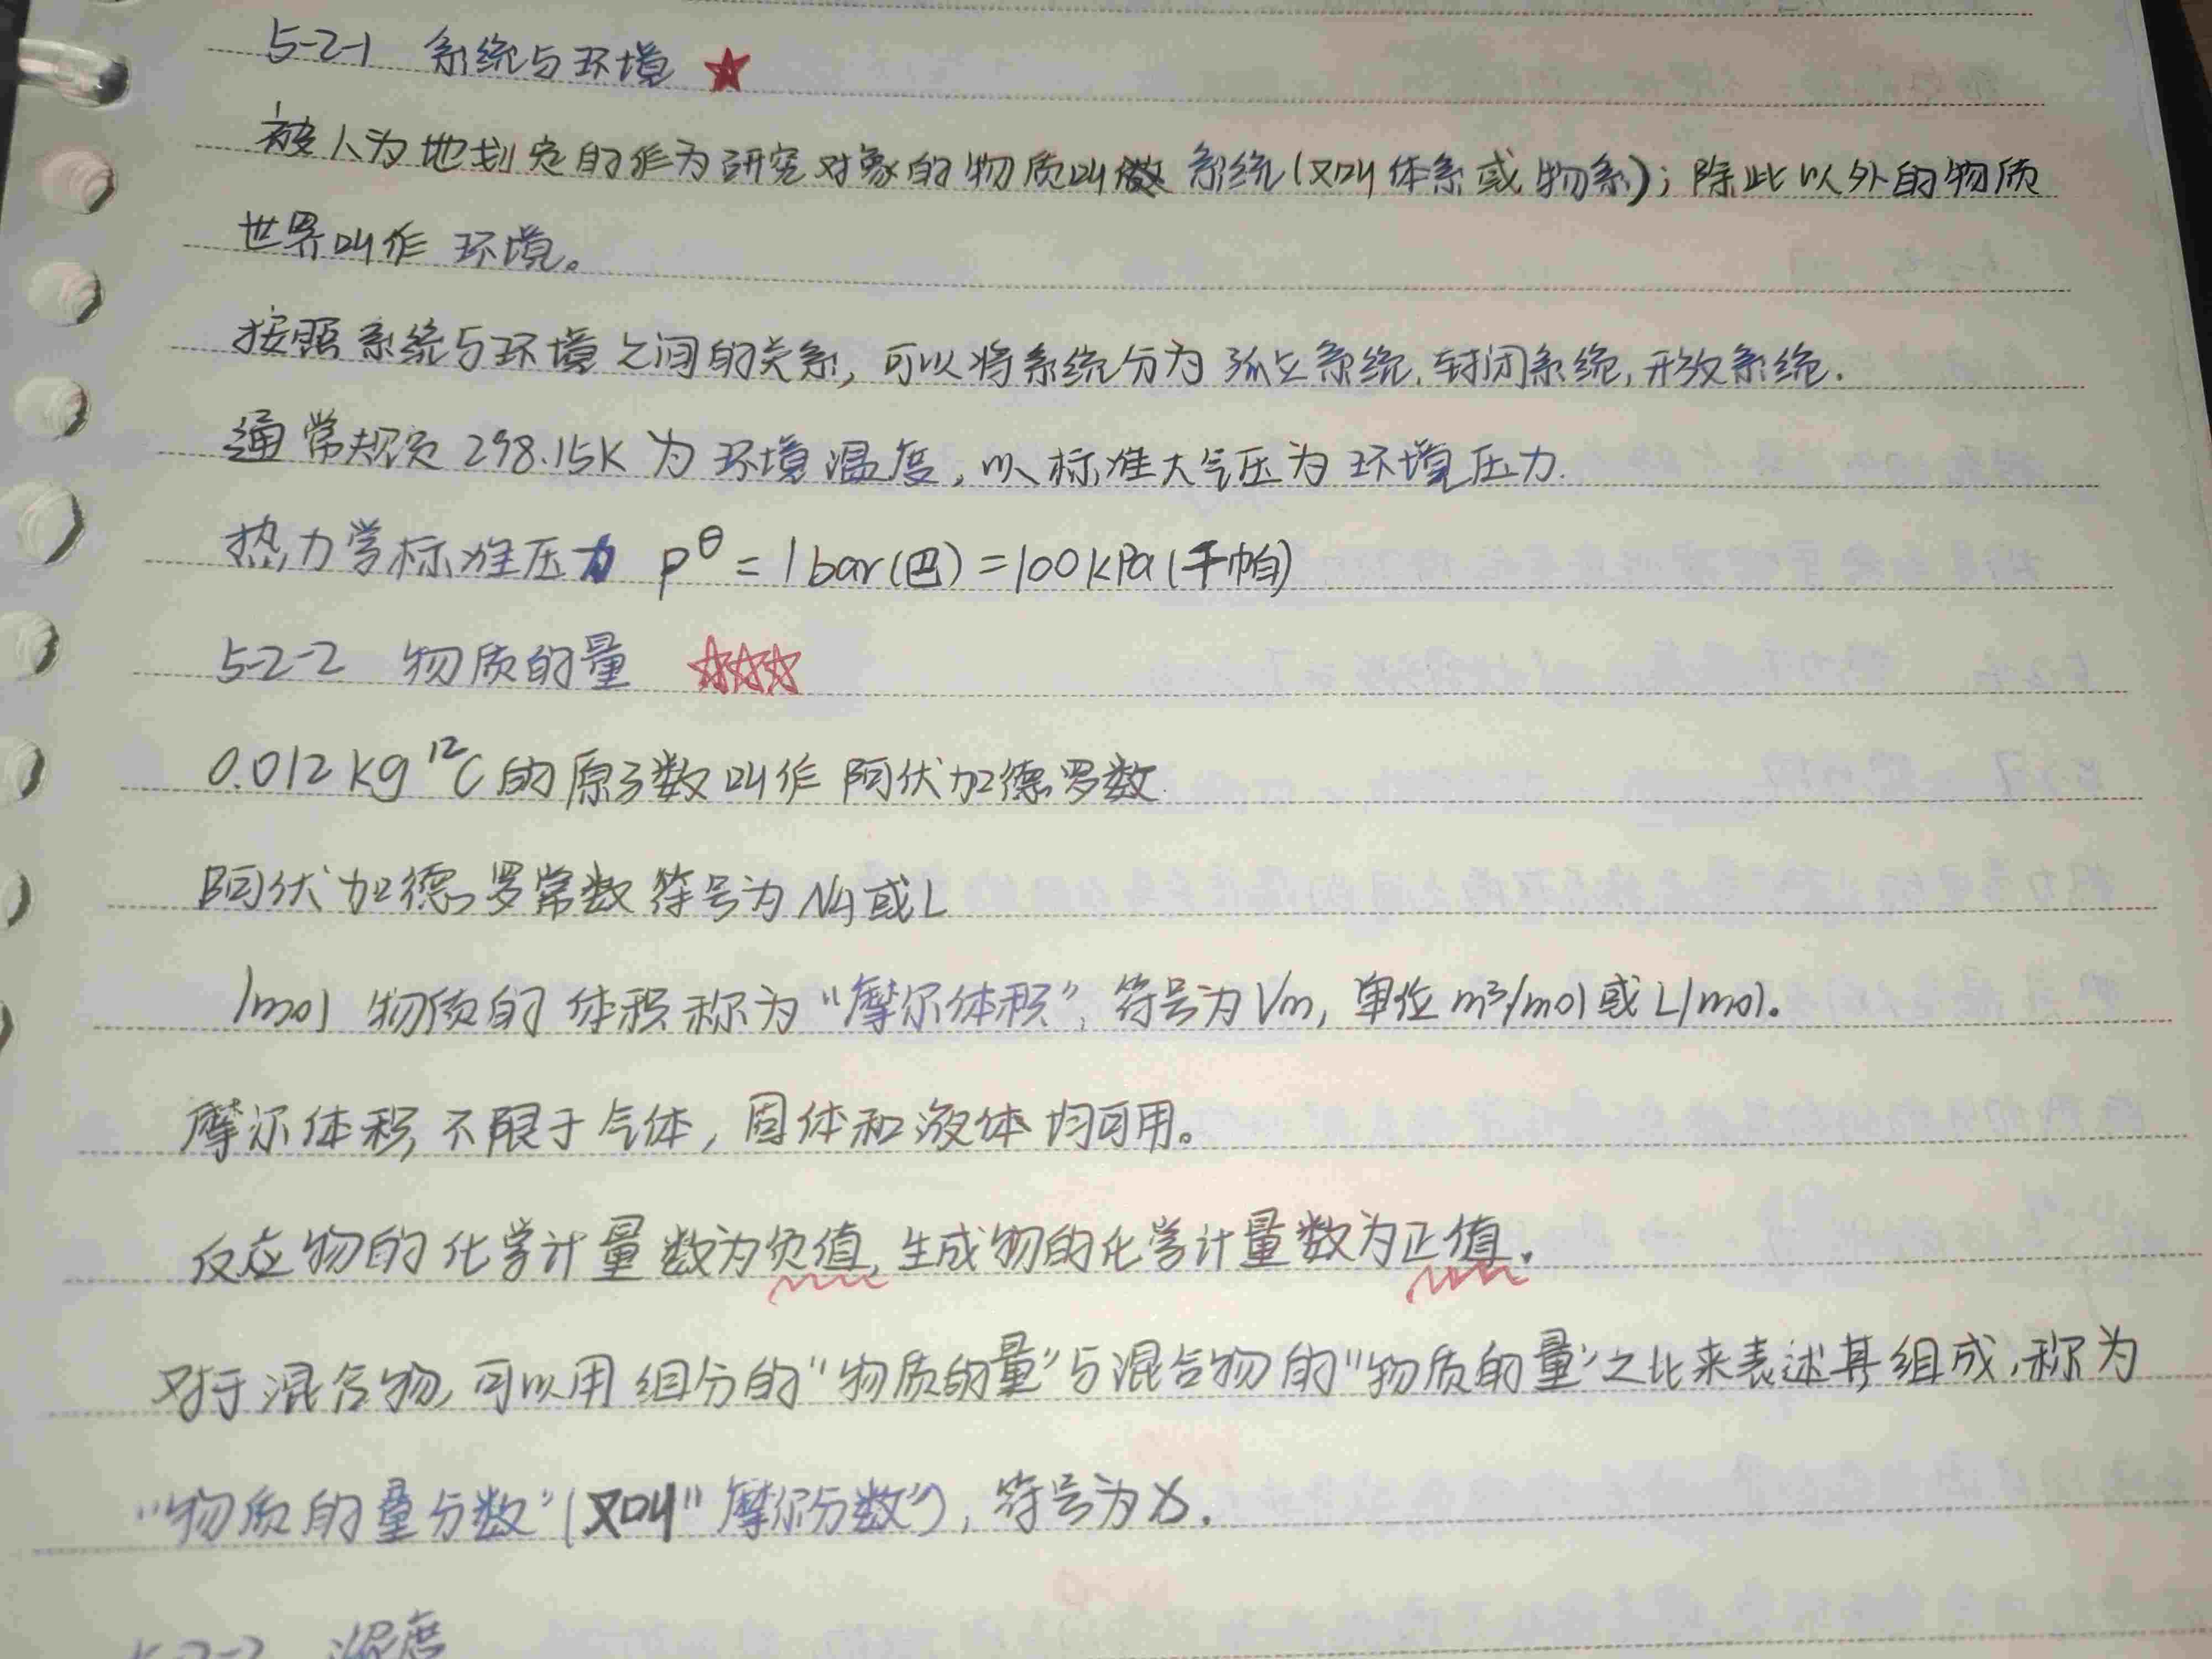 5-2-1 系统与环境
被人为地划定的作为研究对象的物质叫做系统(又叫体系或物系);除此以外的物质
世界叫作环境。
按照系统与环境之间的关系,可以将系统分为孤立系统,封闭系统,开放系统.
通常规定298.15K为环境温度,以标准大气压为环境压力.
热力学标准压力 p^θ=1bar(巴)=100kPa(千帕)
5-2-2 物质的量 ☆☆☆
0.012kg ¹²C的原子数叫作阿伏加德罗数
阿伏加德罗常数符号为NA或L
1mol物质的体积称为“摩尔体积”,符号为Vm,单位m³/mol或L/mol。
摩尔体积不限于气体,固体和液体均可用。
反应物的化学计量数为负值,生成物的化学计量数为正值.
对于混合物,可以用组分的“物质的量”与混合物的“物质的量”之比来表述其组成,称为
“物质的量分数”(又叫“摩尔分数”),符号为x.